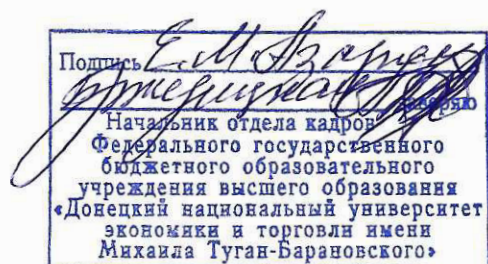 Подпись Е.М. Азарян
заверяю
Начальник отдела кадров
Федерального государственного
бюджетного образовательного
учреждения высшего образования
«Донецкий национальный университет
экономики и торговли имени
Михаила Туган-Барановского»